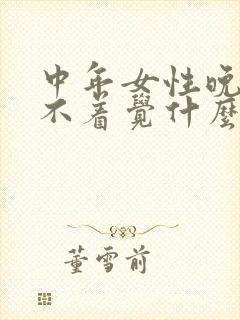 中年女性晚
不着覺什麼
董雪前